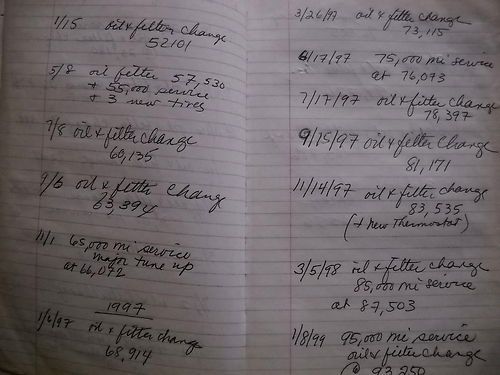 1/15 oil & filter change
52101
5/8 oil filter 57,530
+ 55,000 service
+ 3 new tires
7/8 oil & filter change
60,135
9/6 oil & filter change
63,394
11/1 65,000 mi service
major tune up
at 66,072
1997
1/6/97 oil & filter change
68,914
3/26/97 oil & filter change
73,115
6/17/97 75,000 mi service
at 76,073
7/17/97 oil & filter change
78,397
9/15/97 oil & filter change
81,171
11/14/97 oil & filter change
83,535
(+ new thermostat)
3/5/98 oil & filter change
85,000 mi service
at 87,503
1/8/99 95,000 mi service
oil & filter change
@ 93,250